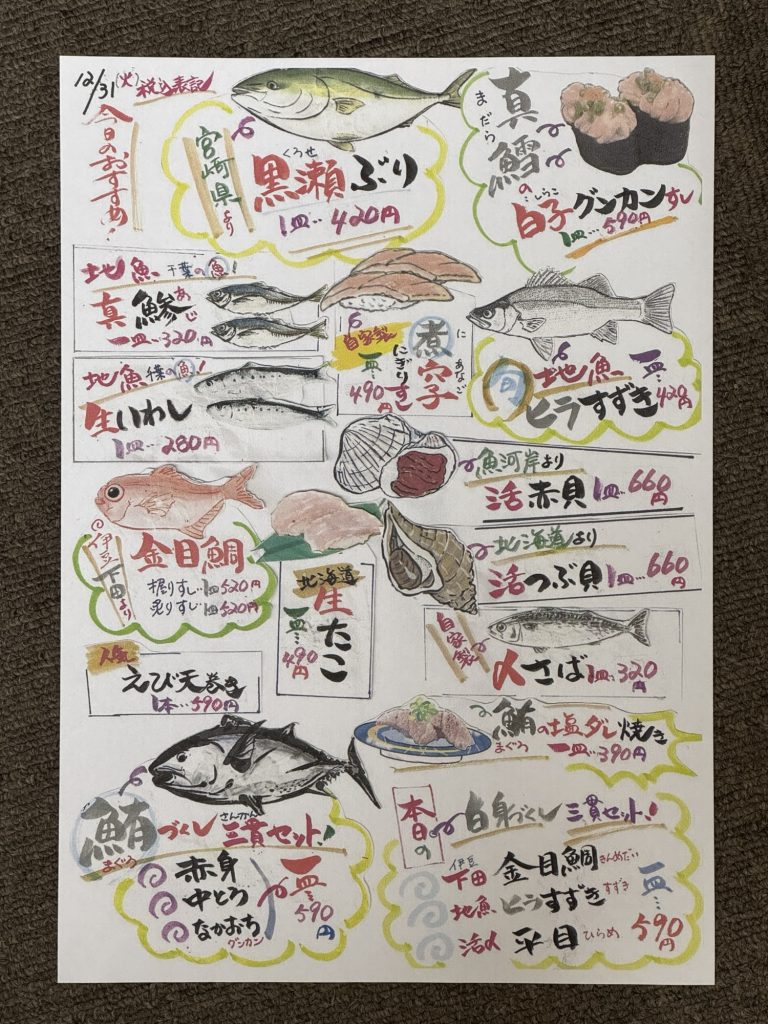 12/31(火)
税込表記
今日のおすすめ
宮崎県より
くろせ
黒瀬ぶり
1皿…420円
まだら
真鱈の
しらこ
白子グンカンすし
1皿…590円
地魚 千葉の魚!
真鯵
あじ
一皿…320円
地魚 千葉の魚!
生いわし
1皿…280円
自家製
煮穴子
に あなご
にぎりすし
一皿…490円
旬 地魚
ヒラすずき
一皿…420円
魚河岸より
活赤貝 1皿…660円
北海道より
活つぶ貝 1皿…660円
伊豆下田より
金目鯛
握りすし 1皿520円
炙りすし 1皿520円
北海道
生たこ
一皿…490円
自家製
〆さば 1皿…320円
人気
えび天巻き
1本…590円
鮪の塩ダレ焼き
まぐろ
一皿…390円
鮪づくし三貫セット!
まぐろ
さんかん
赤身
中とろ
なかおち
グンカン
一皿…590円
本日の
白身づくし三貫セット!
伊豆下田 金目鯛 きんめだい
地魚 ヒラすずき すずき
活〆 平目 ひらめ
一皿…590円